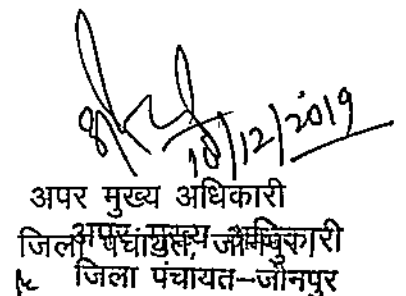 10/12/2019
अपर मुख्य अधिकारी
जिला पंचायत, जौनपुर।
अपर मुख्य अधिकारी
जिला पंचायत–जौनपुर